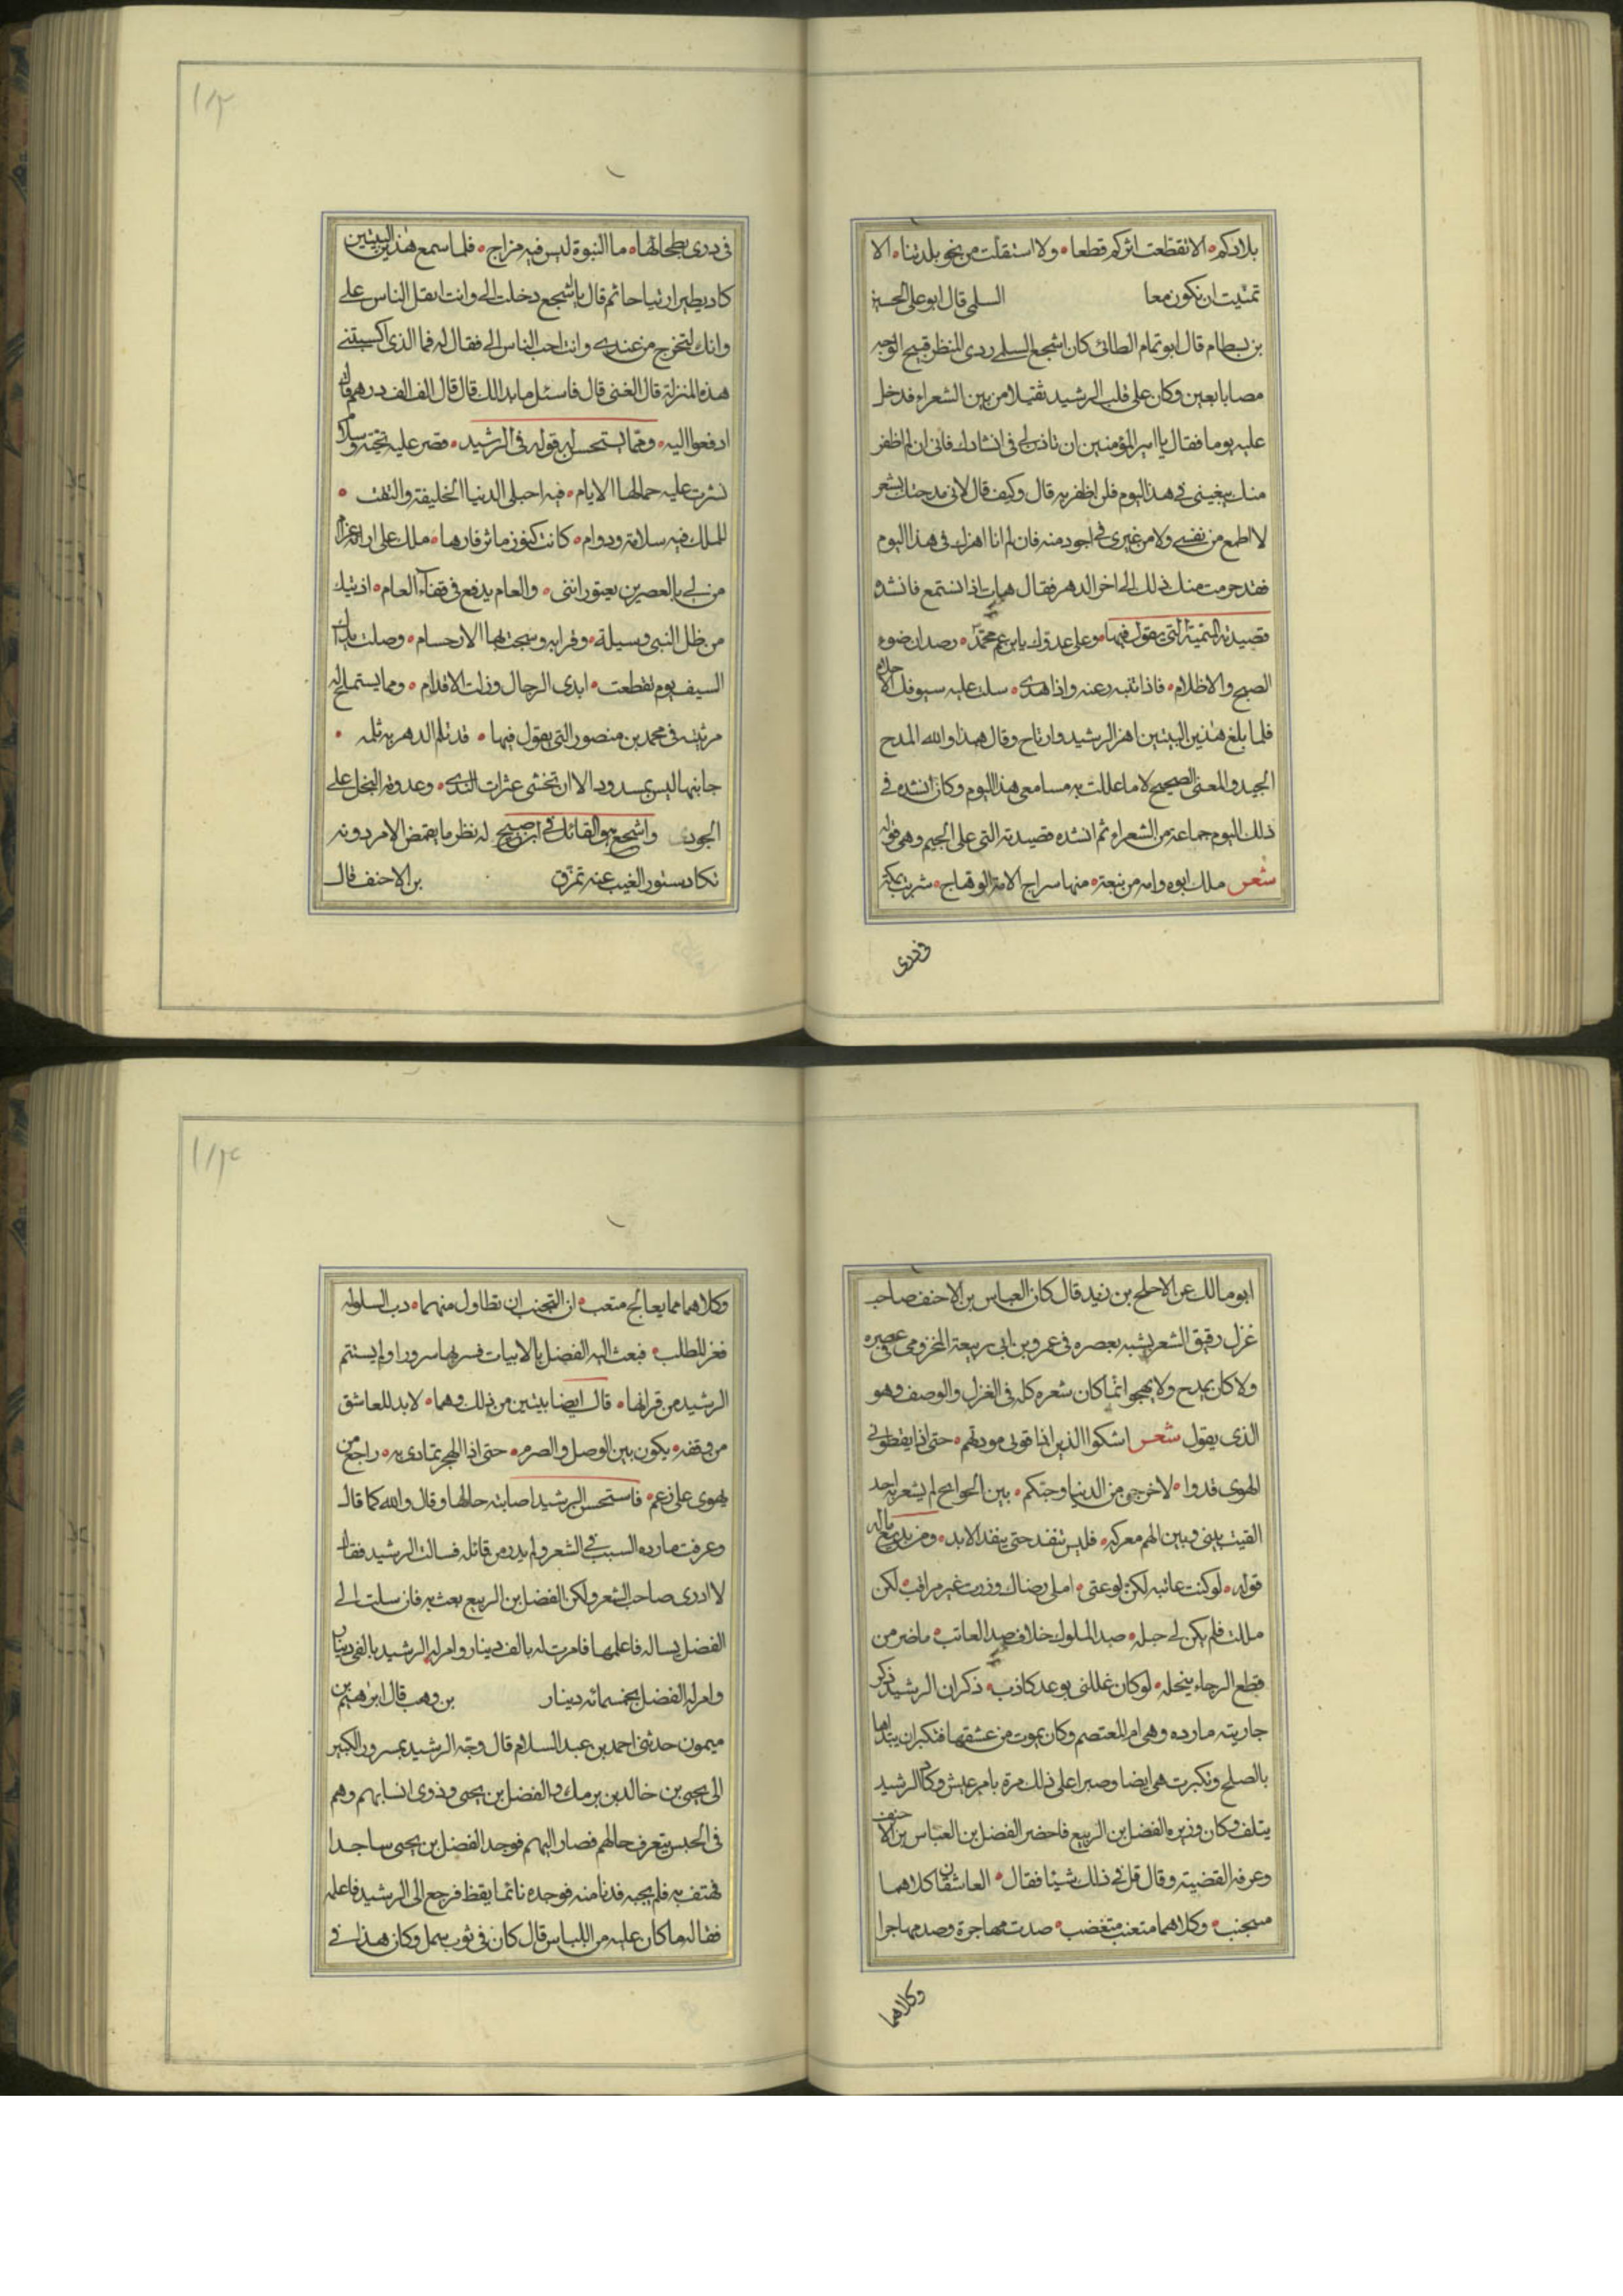 بلادكم ٥ الا تقطعت اثركم قطعا ٥ ولا استقلت من نحو بلدتنا ٥ الا
تمنيت ان نكون معا السلمى قال ابو على الحسين
بن بسطام قال ابو تمام الطائى كان اشجع السلمى ردى المنظر قبيح الوجه
مصابا بعين وكان على قلب الرشيد ثقيلا من بين الشعراء فدخل
عليه يوما فقال يا امير المؤمنين ان تاذن لى فى انشادك فانى ان لم اظفر
منك ببغيتى فى هذا اليوم فلن اظفر به قال وكيف قال لانى مدحتك بشعر
لا اطمع من نفسى ولا من غيرى فى اجود منه فان لم انا اهزك فى هذا اليوم
فقد حرمت منك ذلك الى اخر الدهر فقال هات اذا نستمع فانشده
قصيدته الميمية التى يقول فيها ٥ وعلى عدوك يا بن عم محمد ٥ رصدان ضوء
الصبح والاظلام ٥ فاذا تنبه رعته واذا هدى ٥ سلت عليه سيوفك الاحلام
فلما بلغ هذين البيتين اهز الرشيد وارتاح وقال هذا والله المدح
الجيد والمعنى الصحيح لا ما عللت به مسامعى هذا اليوم وكان انشده فى
ذلك اليوم جماعة من الشعراء ثم انشده قصيدته التى على الجيم وهى قوله
شعر ملك ابوه وامه من نبعة ٥ منها سراج الامة الوهاج ٥ شربت بمكة
فى ذرى
١٨٣
فى ذرى بطحائها ٥ ما النبوة ليس فيه مزاج ٥ فلما سمع هذين البيتين
كاد يطير ارتياحا ثم قال يا اشجع دخلت الى وانت اثقل الناس على
وانك لتخرج من عندى وانت احب الناس الى فقال له فما الذى اكسبتنى
هذه المنزلة قال الغنى قال فاسئل ما بدا لك قال قال الف الف درهم قال
ادفعوا اليه ٥ ومما يستحسن له قوله فى الرشيد ٥ قصر عليه تحية وسلام
نشرت عليه جمالها الايام ٥ فيه احبلى الدنيا الخليفة والتقت ٥
للملك فيه سلامة ودوام ٥
من لى بالعصرين يعتورانى ٥ والعام يدفع فى قفاء العام ٥
من ظل النبى وسيلة ٥ وقرابه وسجت بها الارحسام ٥ وصلت يداك
السيف يوم تقطعت ٥ ايدى الرجال وزلت الاقدام ٥ ومما يستملح له
مرثيته فى محمد بن منصور التى يقول فيها ٥ قد ثلم الدهر به ثلمه ٥
جانبها ليس بمسدود الا ان تخشى عثرات الندى ٥ وعدوة البخل على
الجود واشجع هو القائل فى ابن صبيح له نظر ما يغمض الامر دونه
تكاد ستور الغيب عنه تمزق بن الاحنف قال
ابو مالك عن الاحلح بن زيد قال كان العباس بن الاحنف صاحب
غزل رقيق الشعر يشبه بعصره فى عمرو بن ابى ربيعة المخزومى فى عصره
ولا كان يمدح ولا يهجو انما كان شعره كله فى الغزل والوصف وهو
الذى يقول شعر اشكوا الذين اذاقونى مودتهم ٥ حتى اذا يقظونى
الهوى قدوا ٥ لاخرجن من الدنيا وحبكم ٥ بين الجوانح لم يشعر به احد
القيت بينى وبين الهم معركه ٥ فليس تنفد حتى ينفد الابد ٥ ومن بديع ماله
قوله ٥ لو كنت عاتبه لكن لوعتى ٥ املى رضاك وزرت غير مراقب ٥ لكن
مللت فلم يكن لى حيله ٥ صد الملول خلاف صد العاتب ٥ ما ضر من
قطع الرجاء ببخله ٥ لو كان عللنى بوعد كاذب ٥ ذكر ان الرشيد ذكر
جاريته مارده وهى ام المعتصم وكان يموت من عشقها فتكبر ان يبتداها
بالصلح وتكبرت هى ايضا وصبرا على ذلك مرة بامر عيش وكاد الرشيد
يتلف وكان وزيره الفضل بن الربيع فاحضر الفضل بن العباس بن الاحنف
وعرفه القضية وقال قل فى ذلك شيئا فقال ٥ العاشقان كلاهما
متجنب ٥ وكلاهما متعتب متغضب ٥ صدت مهاجرة وصد مهاجرا
وكلاهما
١٨٤
وكلاهما مما يعالج متعب ٥ ان التجنب ان تطاول منهما ٥ دب السلو له
فعز المطلب ٥ فبعث اليه الفضل بالابيات فسر بها سرورا ولم يستتم
الرشيد من قرائها ٥ قال ايضا بيتين من ذلك وهما ٥ لا بد للعاشق
من وقفه ٥ يكون بين الوصل والصرم ٥ حتى اذا الهجر تمادى به ٥ راجع من
يهوى على زعم ٥ فاستحسن الرشيد اصابته حالها وقال والله كما قال
وعرفت مارده السبب فى الشعر ولم يدر من قائله فسالت الرشيد فقال
لا ادرى صاحب الشعر ولكن الفضل بن الربيع بعث به فارسلت الى
الفضل يساله فاعلمها فامرت له بالف دينار وامر له الرشيد بالفى دينار
وامر له الفضل بخمسمائه دينار بن وهب قال ابرهيم بن
ميمون حدثنى احمد بن عبد السلام قال وجه الرشيد بمسرور الكبير
الى يحيى بن خالد بن برمك والفضل بن يحيى وذوى انسابهم وهم
فى الحبس يتعرف حالهم فصار اليهم فوجد الفضل بن يحيى ساجدا
فهتف به فلم يجبه فدنا منه فوجده نائما يقظ فرجع الى الرشيد فاعلمه
فقال له ما كان عليه من اللباس قال كان فى ثوب سمل وكان هذا فى